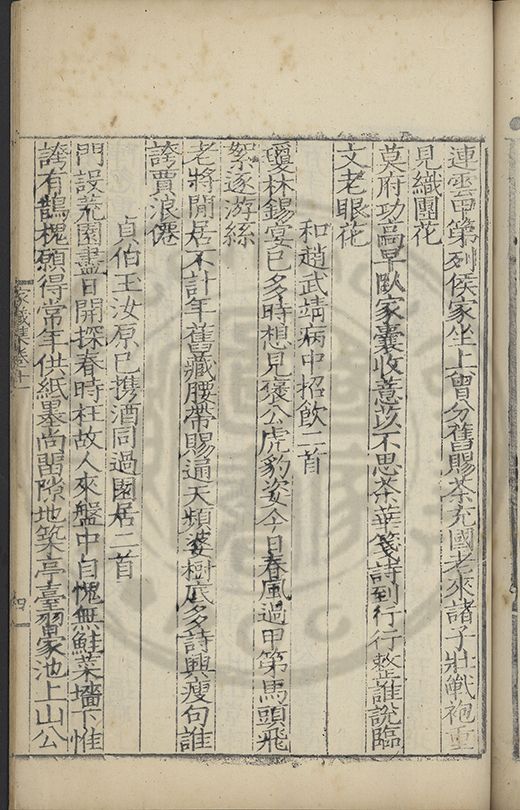 連雲甲第列侯家坐上曾分舊賜茶充國老來諸子壯戰袍重
見織團花
莫府功高早臥家囊收薏苡不思茶華箋詩到行行整誰說臨
文老眼花
和趙武靖病中招飲二首
瓊林錫宴已多時想見褒公虎豹姿今日春風過甲第馬頭飛
絮逐游絲
老將閒居不計年舊藏腰帶賜通天頻婆樹底多詩興瘦句誰
誇賈浪僊
貞伯王汝原已携酒同過園居二首
門設荒園盡日開探春時枉故人來盤中自愧無鮭菜墻下惟
誇有鵲槐願得常年供紙墨尚留隙地築亭臺習家池上山公
家藏集卷十
四